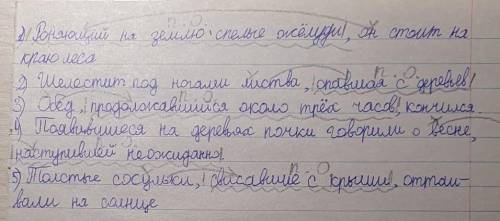 1) Роняющий на землю спелые жёлуди, он стоит на
краю леса
2) Шелестит под ногами листва, опавшая с деревьев
3) Обед, продолжавшийся около трёх часов, кончился
4) Появившиеся на деревьях почки говорили о весне,
наступившей неожиданно.
5) Толстые сосульки, свисавшие с крыши, оттаи-
вали на солнце